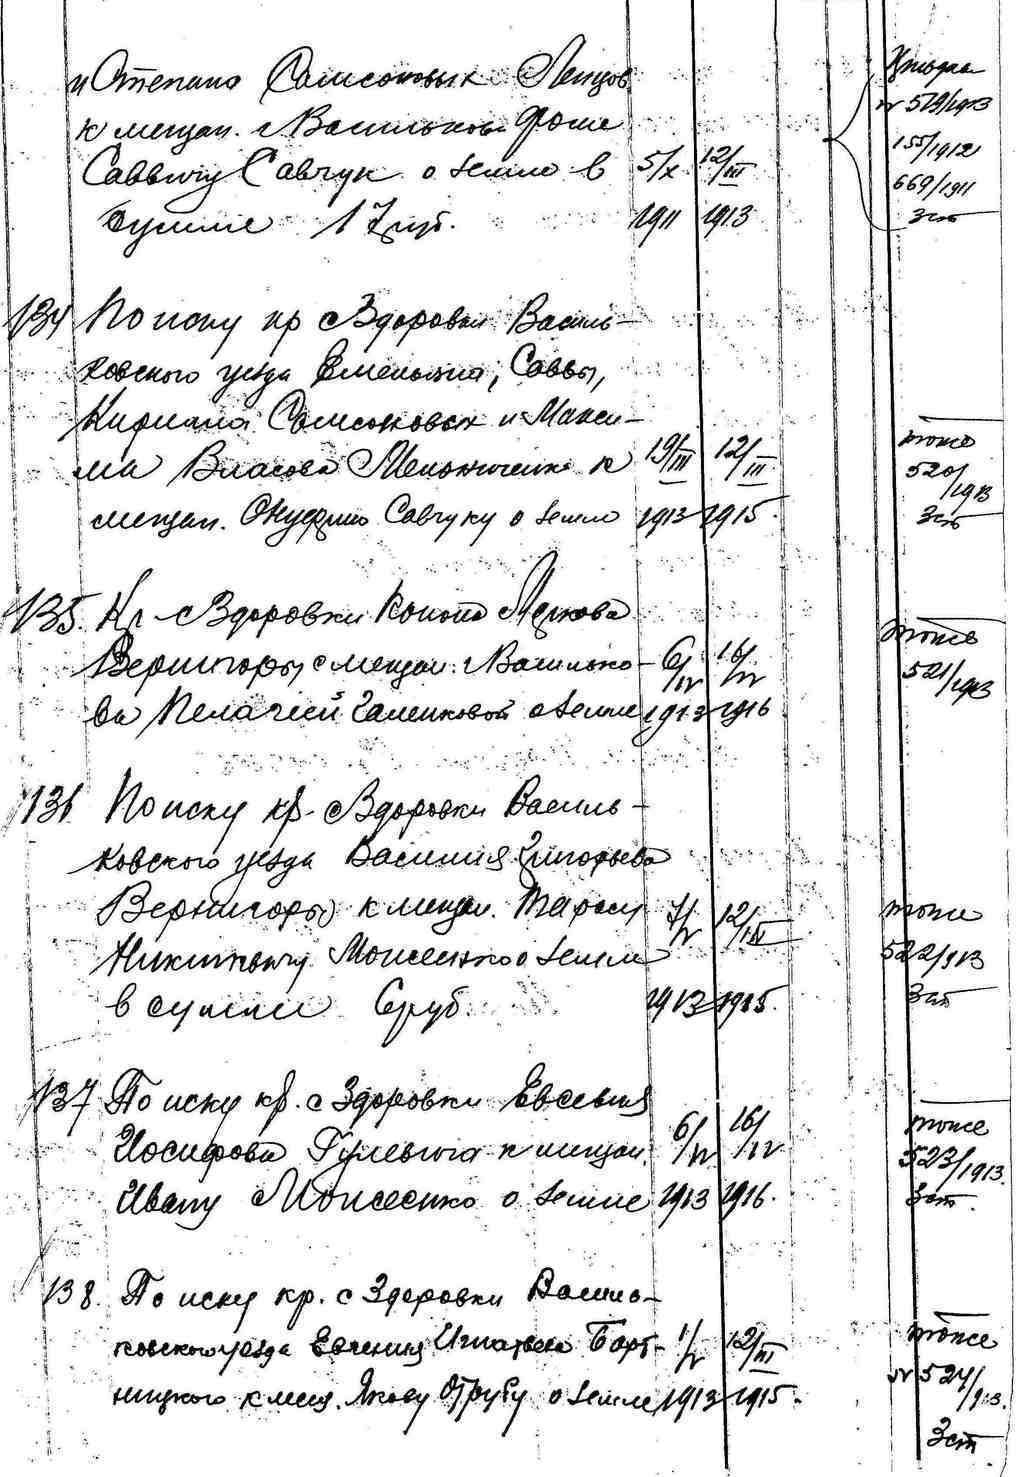 и Степана Самсоновых
к мещан. г. Василькова Фоме
Саввичу Савчук о земле в 5/X 12/III
сумме 17 руб. 1911 1913
№ 519/1913
155/1912
669/1911
3 ст
134 По иску кр с Здоровки Василь-
ковского уезда Емельяна, Саввы,
Кирилла Самсоновых и Макси-
ма Власова к 19/III 12/III
мещан. Онуфрию Савчуку о земле 1913 1915.
тоже
520/1913
3 ст
135. Кр с Здоровки Конона
Вернигоры с мещан. г. Василько- 6/IV 16/IV
ва Пелагией Галенковой о земле 1913 1916
тоже
521/1913
136 По иску кр. с Здоровки Василь-
ковского уезда Василия Григорьева
Вернигоры к мещан. Тарасу 1/IV 12/III
Никитичу Моисеенко о земле
в сумме 6 руб. 1913 1915.
тоже
522/913
3 ст
137 По иску кр. с Здоровки Евсевия
Иосифова Гулевича к мещан. 6/IV 16/IV
Ивану Моисеенко о земле 1913 1916.
тоже
523/1913.
3 ст.
138. По иску кр. с Здоровки Василь-
ковского уезда Евгения Игнатьева Борт- 1/V 12/III
ницкого к мещ. Якову Отрубу о земле 1913 1915.
тоже
№ 524/913.
3 ст